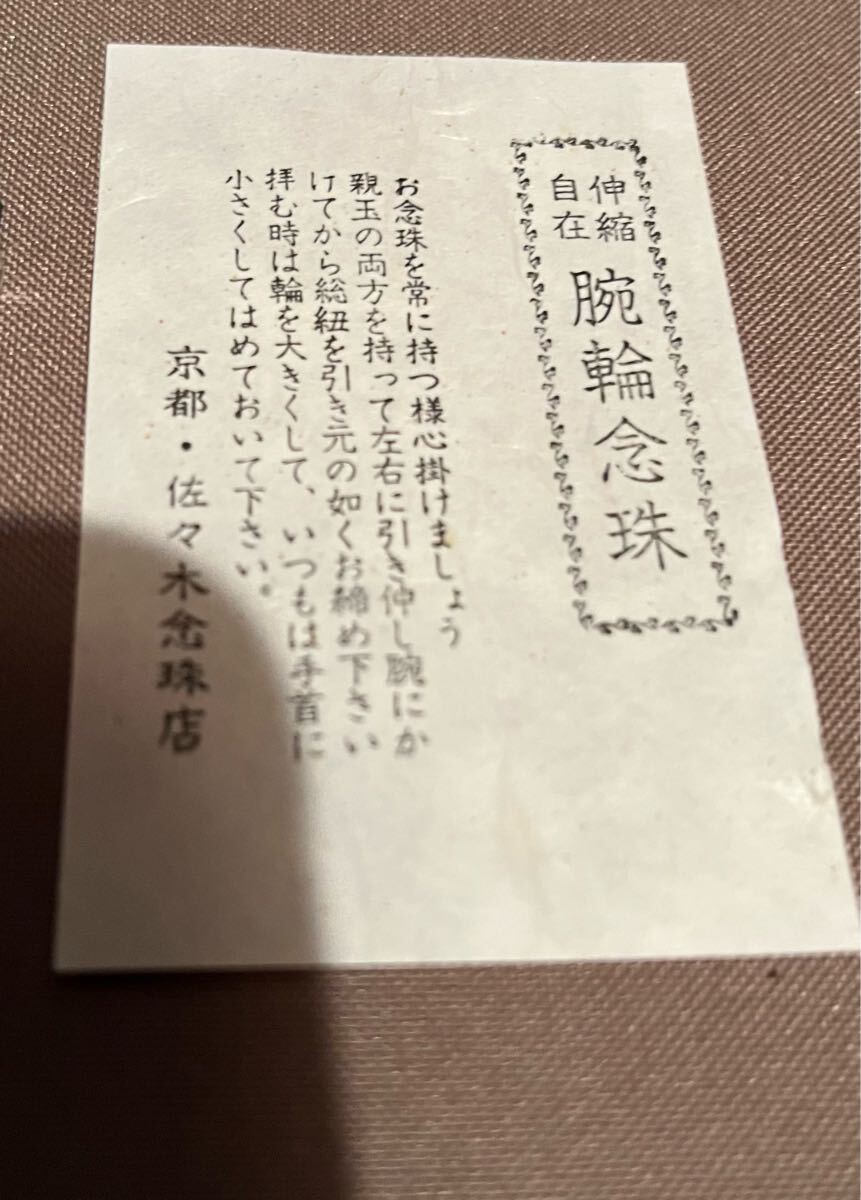 伸縮
自在
腕輪念珠
お念珠を常に持つ様心掛けましょう
親玉の両方を持って左右に引き伸し腕にか
けてから総紐を引き元の如くお締め下さい
拝む時は輪を大きくして、いつもは手首に
小さくしてはめておいて下さい。
京都・佐々木念珠店